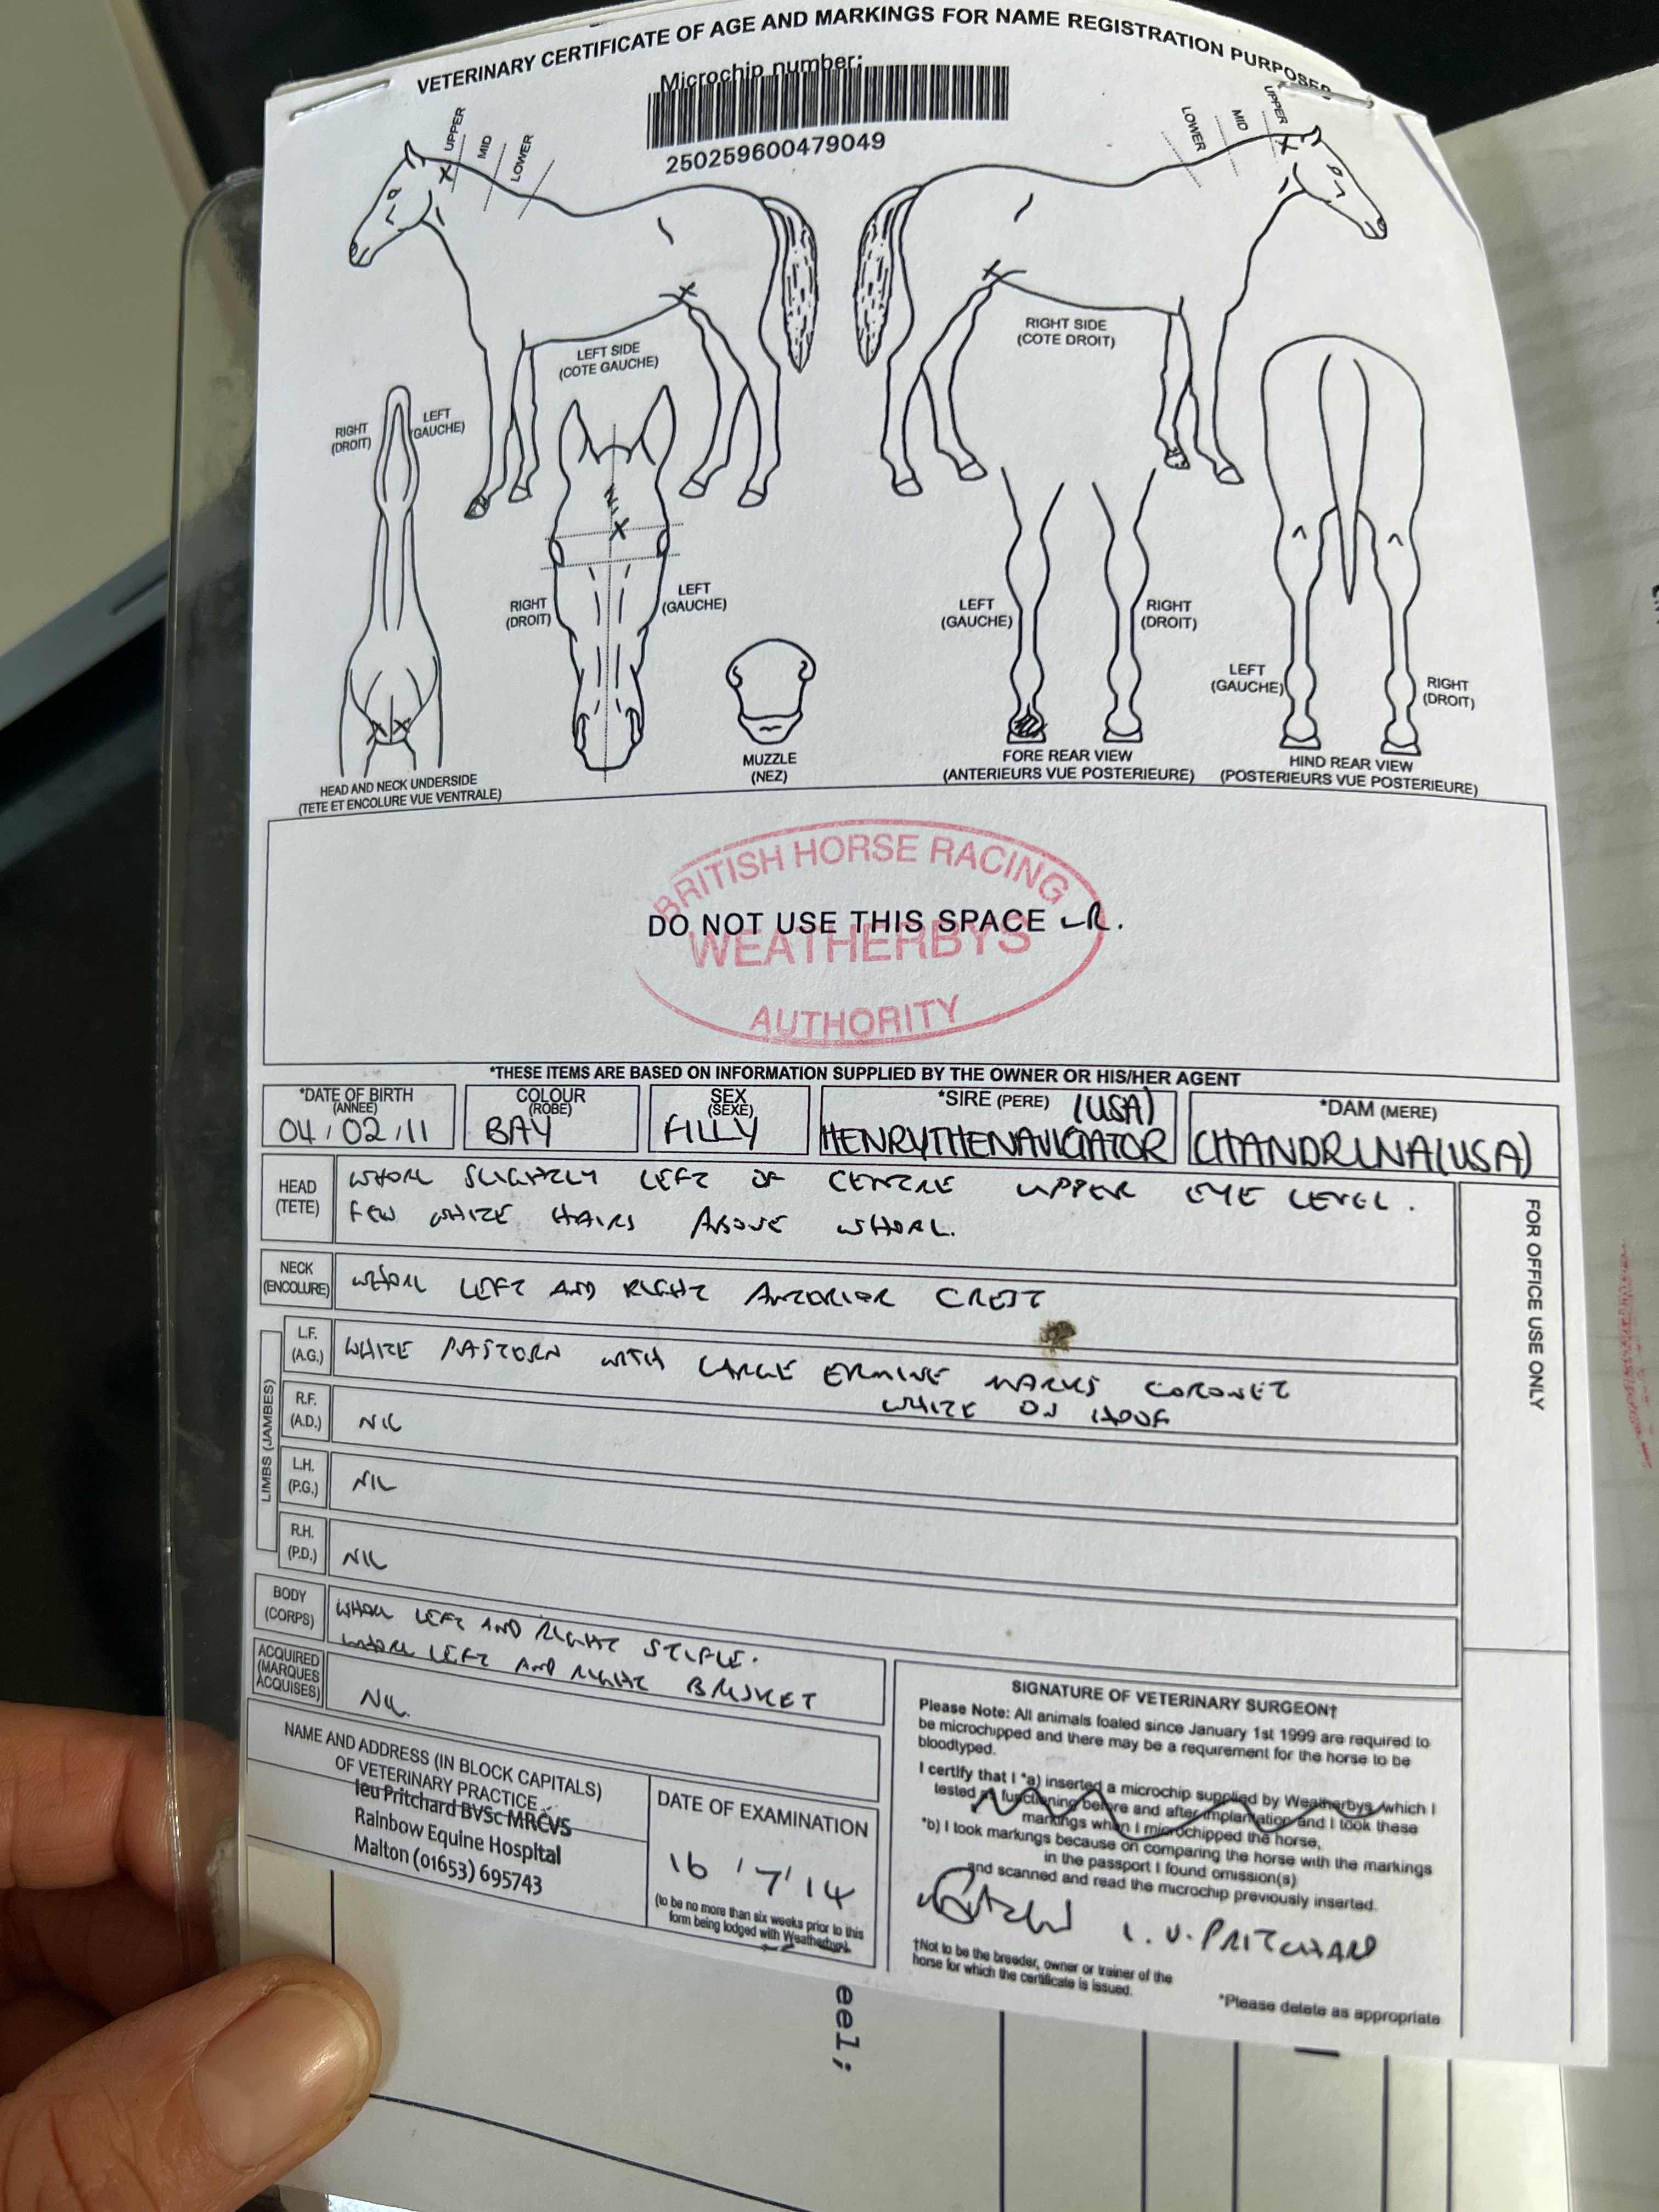 VETERINARY CERTIFICATE OF AGE AND MARKINGS FOR NAME REGISTRATION PURPOSES
Microchip number:
250259600479049
UPPER
MID
LOWER
LOWER
MID
UPPER
LEFT SIDE
(COTE GAUCHE)
RIGHT SIDE
(COTE DROIT)
RIGHT
(DROIT)
LEFT
(GAUCHE)
RIGHT
(DROIT)
LEFT
(GAUCHE)
LEFT
(GAUCHE)
RIGHT
(DROIT)
LEFT
(GAUCHE)
RIGHT
(DROIT)
HEAD AND NECK UNDERSIDE
(TETE ET ENCOLURE VUE VENTRALE)
MUZZLE
(NEZ)
FORE REAR VIEW
(ANTERIEURS VUE POSTERIEURE)
HIND REAR VIEW
(POSTERIEURS VUE POSTERIEURE)
BRITISH HORSE RACING
DO NOT USE THIS SPACE
WEATHERBYS
AUTHORITY
*THESE ITEMS ARE BASED ON INFORMATION SUPPLIED BY THE OWNER OR HIS/HER AGENT
*DATE OF BIRTH
(ANNEE)
04/02/11
COLOUR
(ROBE)
BAY
SEX
(SEXE)
FILLY
*SIRE (PERE) (USA)
HENRYTHENAVIGATOR
*DAM (MERE)
CHANDRINA(USA)
HEAD
(TETE)
WHORL SLIGHTLY LEFT OF CENTRE UPPER EYE LEVEL.
FEW WHITE HAIRS ABOVE WHORL.
NECK
(ENCOLURE)
WHORL LEFT AND RIGHT ANTERIOR CREST
LIMBS (JAMBES)
L.F.
(A.G.)
WHITE PASTERN WITH LARGE ERMINE MARKS CORONET
WHITE ON HOOF
R.F.
(A.D.)
NIL
L.H.
(P.G.)
NIL
R.H.
(P.D.)
NIL
BODY
(CORPS)
WHORL LEFT AND RIGHT STIFLE.
WHORL LEFT AND RIGHT BRISKET
ACQUIRED
(MARQUES
ACQUISES)
NIL.
FOR OFFICE USE ONLY
NAME AND ADDRESS (IN BLOCK CAPITALS)
OF VETERINARY PRACTICE
Ieu Pritchard BVSc MRCVS
Rainbow Equine Hospital
Malton (01653) 695743
DATE OF EXAMINATION
16/7/14
(to be no more than six weeks prior to this
form being lodged with Weatherbys).
SIGNATURE OF VETERINARY SURGEON†
Please Note: All animals foaled since January 1st 1999 are required to
be microchipped and there may be a requirement for the horse to be
bloodtyped.
I certify that I *a) inserted a microchip supplied by Weatherbys which I
tested as functioning before and after implantation and I took these
markings when I microchipped the horse,
*b) I took markings because on comparing the horse with the markings
in the passport I found omission(s)
and scanned and read the microchip previously inserted.
I. U. PRITCHARD
†Not to be the breeder, owner or trainer of the
horse for which the certificate is issued.
*Please delete as appropriate
eel;